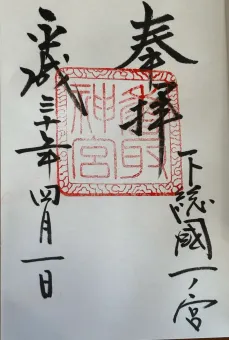 奉拝
下総國一ノ宮
香取神宮
平成三十年四月一日